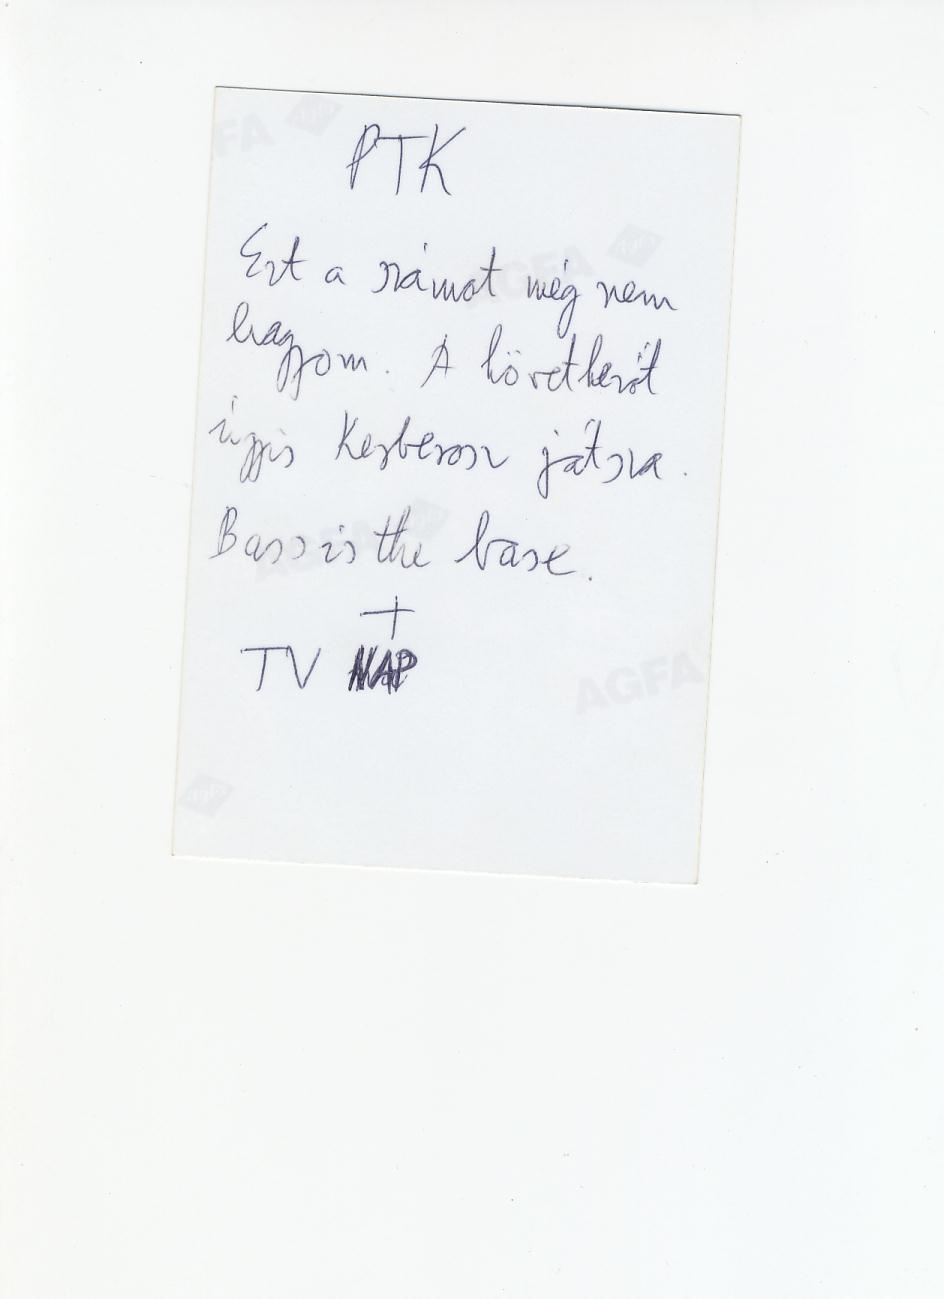 PTK
Ezt a számot még nem
hagyom. A következőt
úgyis Kerberosz játsza.
Bass is the base.
+
TV NAP
AGFA
AGFA
AGFA